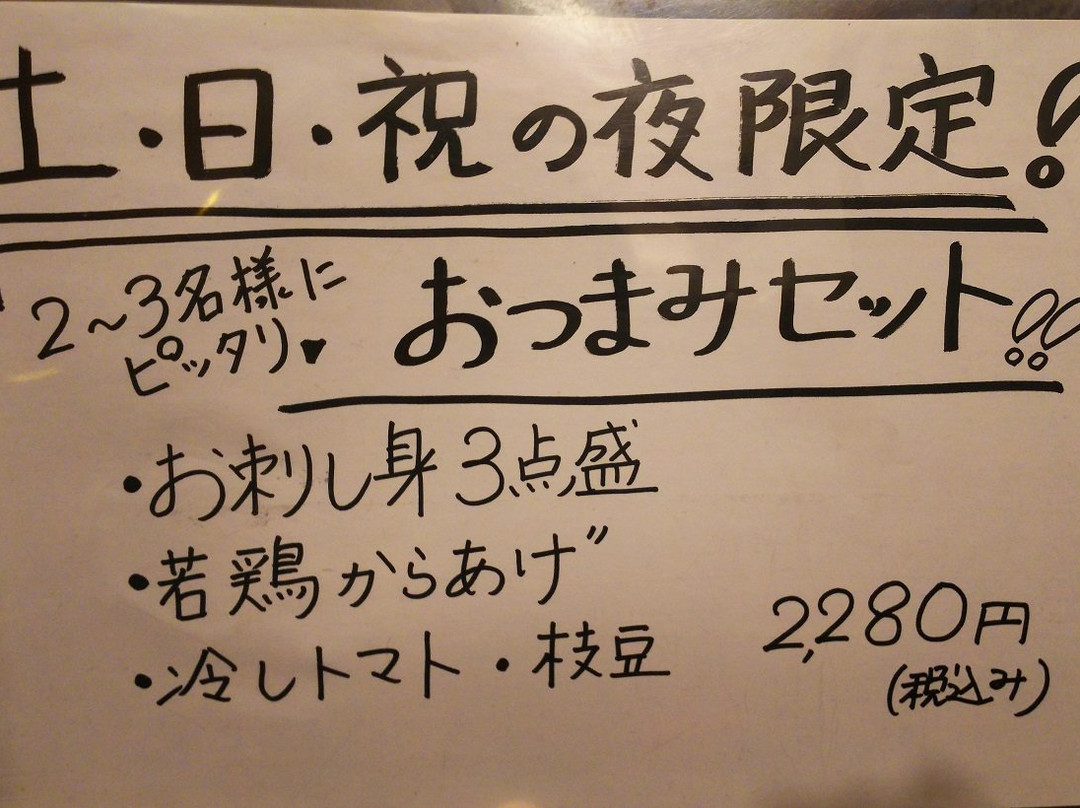 土・日・祝の夜限定!!
2～3名様に
ピッタリ♥
おつまみセット!!
・お刺し身3点盛
・若鶏からあげ
・冷しトマト・枝豆
2,280円
(税込み)